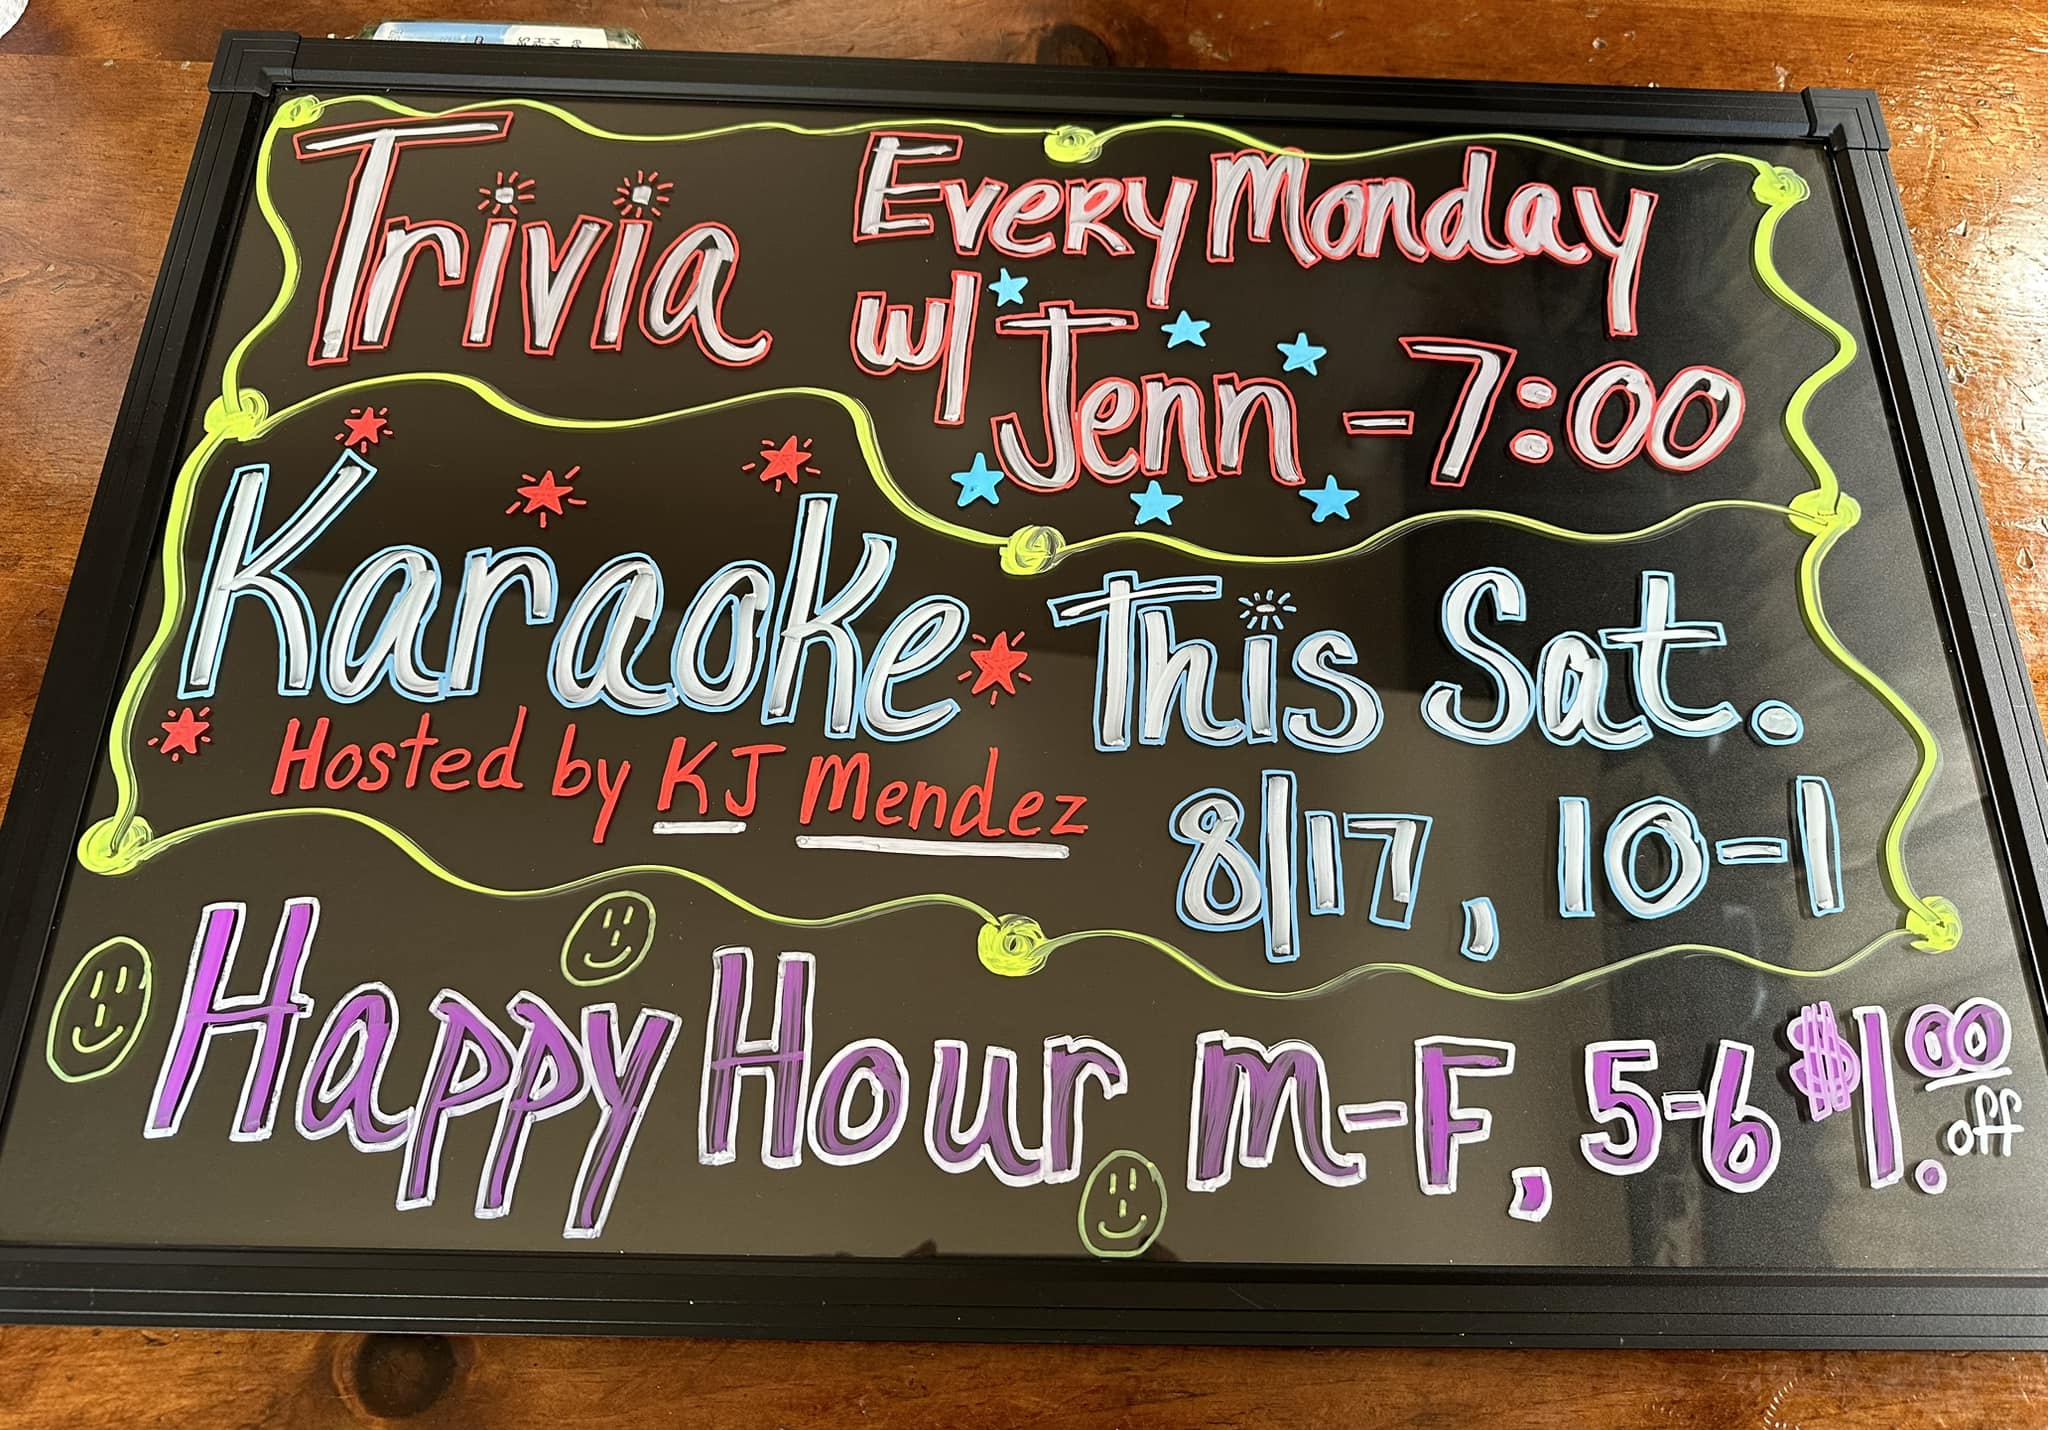 Trivia Every Monday
w/ Jenn - 7:00
Karaoke This Sat.
Hosted by KJ Mendez
8/17, 10-1
Happy Hour M-F, 5-6 $1.00 off